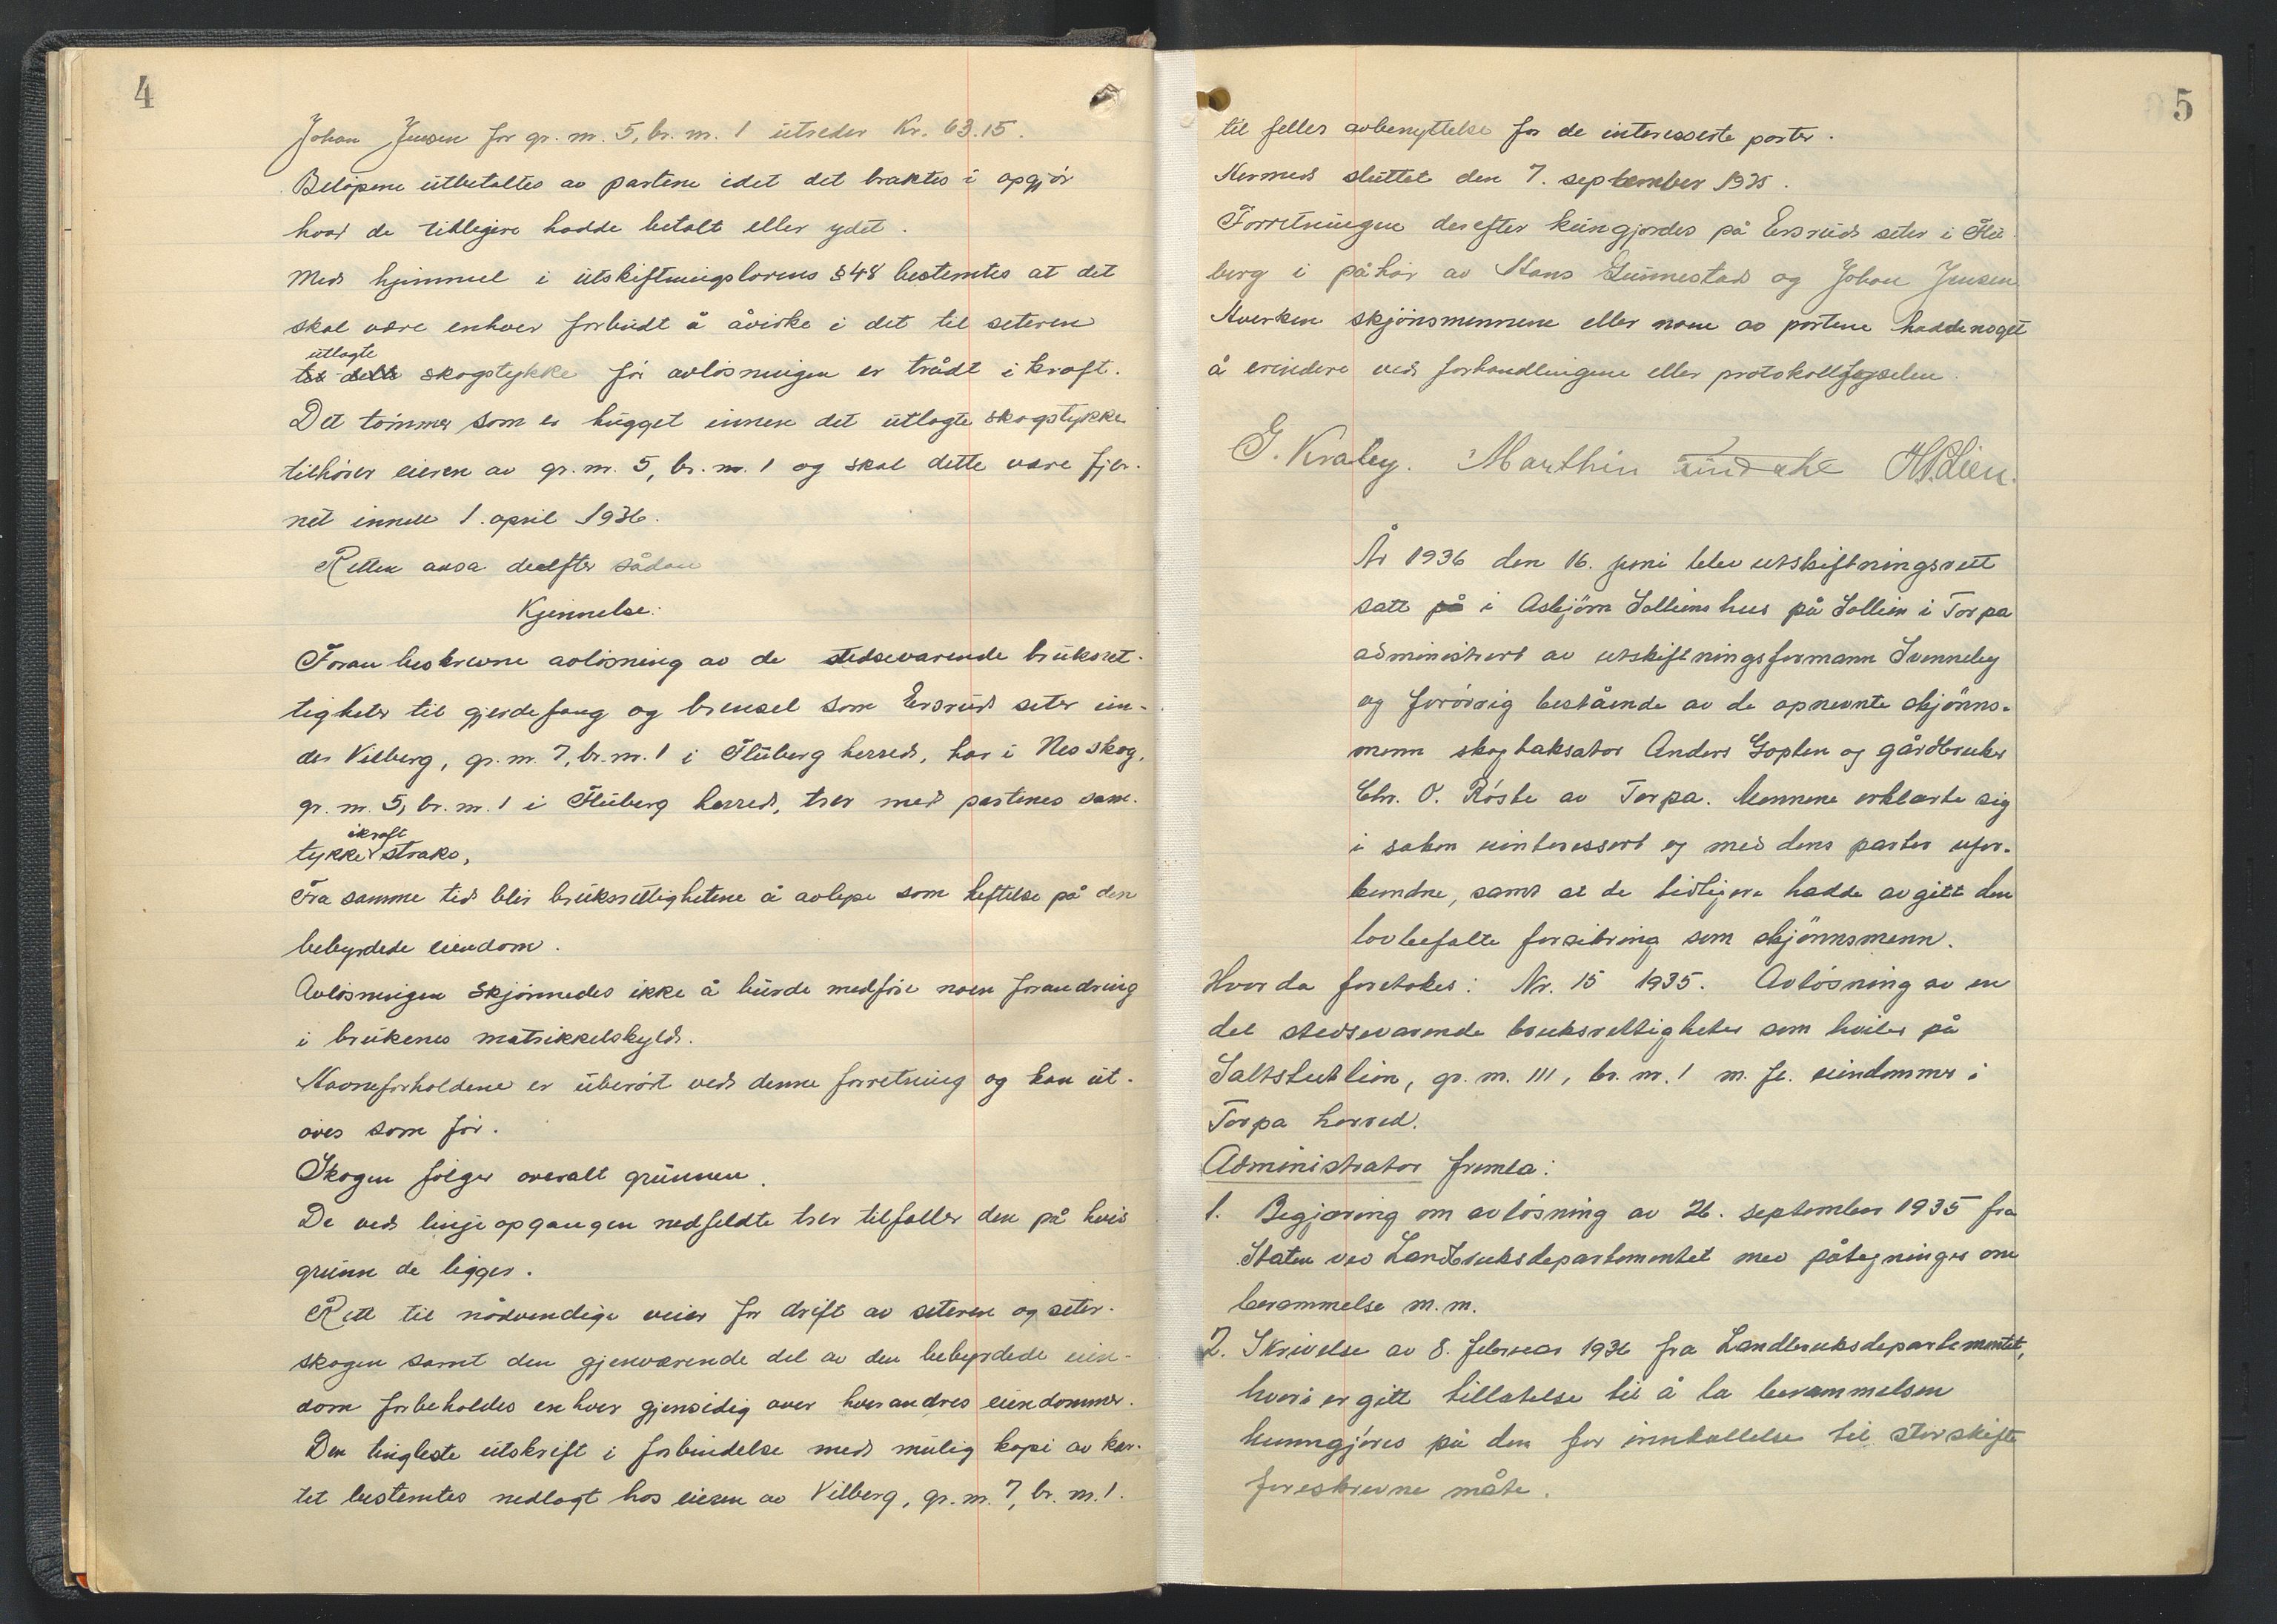 4
Johan Jensen for gr. nr. 5, br. nr. 1 utreder Kr. 63.15.
Beløpene utbetaltes av partene idet det braktes i opgjør
hvad de tidligere hadde betalt eller ydet.
Med hjemmel i utskiftningslovens § 48 bestemtes at det
skal være enhver forbudt å åvirke i det til seteren
utlagte
skogstykke før avløsningen er trådt i kraft.
Det tømmer som er hugget innen det utlagte skogstykke
tilhører eieren av gr. nr. 5, br. nr. 1 og skal dette være fjer-
net innen 1. april 1936.
Retten avsa derefter sådan
Kjennelse:
Foran beskrevne avløsning av de stedsevarende bruksret-
tigheter til gjerdefang og brensel som Ersrud seter un-
der Vilberg, gr. nr. 7, br. nr. 1 i Fluberg herred, har i Nes skog,
gr. nr. 5, br. nr. 1 i Fluberg herred, trer med partenes sam-
ikraft
tykke straks.
Fra samme tid blir bruksrettighetene å avlyse som heftelse på den
bebyrdede eiendom.
Avløsningen skjønnedes ikke å burde medføre noen forandring
i brukenes matrikkelskyld.
Havneforholdene er uberørt ved denne forretning og kan ut-
øves som før.
Skogen følger overalt grunnen.
De ved linjeopgangen nedfeldte trær tilfaller den på hvis
grunn de ligger.
Rett til nødvendige veier for drift av seteren og seter-
skogen samt den gjenværende del av den bebyrdede eien-
dom forbeholdes enhver gjensidig over hverandres eiendommer.
Den tingleste utskrift i forbindelse med mulig kopi av kar-
tet bestemtes nedlagt hos eieren av Vilberg, gr. nr. 7, br. nr. 1.
5
til felles avbenyttelse for de interesserte parter.
Hermed sluttet den 7. september 1935.
Forretningen derefter kungjordes på Ersrud seter i Flu-
berg i påhør av Hans Gunnestad og Johan Jensen
Hverken skjønsmennene eller noen av partene hadde noget
å erindre ved forhandlingene eller protokollførselen.
G. Kraby. Marthin H. Lien.
År 1936 den 16. juni blev utskiftningsrett
satt på i Asbjørn Solliens hus på Sollien i Torpa
administrert av utskiftningsformann Svenneby
og forøvrig bestående av de opnevnte skjønns-
menn skogtaksator Anders Goplen og gårdbruker
Chr. O. Røste av Torpa. Mennene erklærte sig
i saken uinteressert og med dens parter ufor-
bundne, samt at de tidligere hadde avgitt den
lovbefalte forsikring som skjønnsmenn.
Hvor da foretokes: Nr. 15 1935. Avløsning av en
del stedsevarende bruksrettigheter som hviler på
gr. nr. 111, br. nr. 1 m. fl. eiendommer i
Torpa herred.
Administrator fremla:
1. Begjæring om avløsning av 26. september 1935 fra
Staten ved Landbruksdepartementet med påtegninger om
berammelse m. m.
2. Skrivelse av 8. februar 1936 fra Landbruksdepartementet,
hvori er gitt tillatelse til å la berammelsen
kunngjøres på den for innkallelse til storskifte
foreskrevne måte.